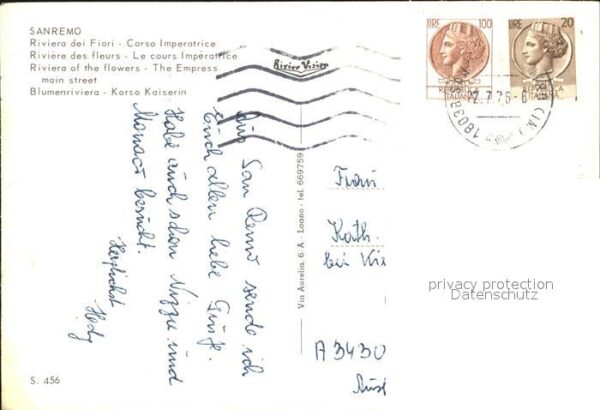 SANREMO
Riviera dei Fiori - Corso Imperatrice
Rivière des fleurs - Le cours Impératrice
Riviera of the flowers - The Empress
main street
Blumenriviera - Korso Kaiserin
Riviera Vision
LIRE 100
REPUBBLICA
ITALIANA
LIRE 20
REPUBBLICA
ITALIANA
Aus San Remo sende ich
Euch allen liebe Grüße.
Habe auch schon Nizza und
Monaco besucht.
Herzlichst
Hedy
Via Aurelia, 6 A - Loano - tel. 669759
Frau
Kath.
bei
A 3430
privacy protection
Datenschutz
S. 456